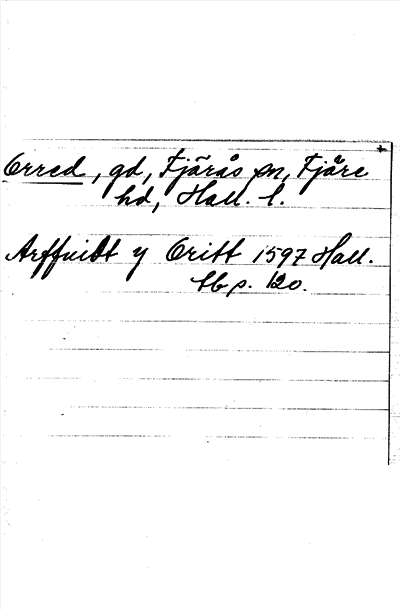 Orred, gd, Fjärås sn, Fjäre
hd, Hall. l.
Arffuidt y Oritt 1597 Hall.
tb p. 120.